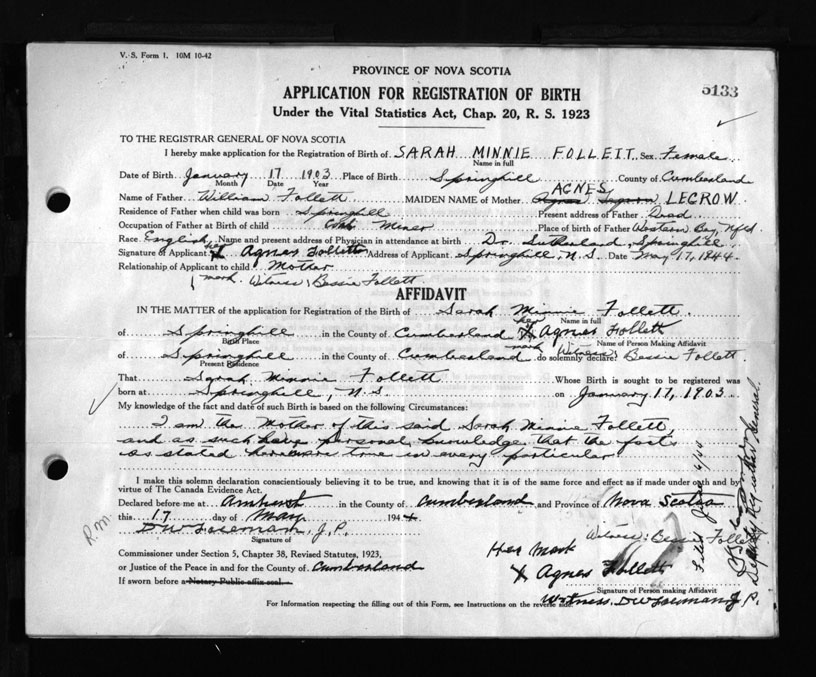 V. S. Form 1. 10M 10-42
PROVINCE OF NOVA SCOTIA
5133
APPLICATION FOR REGISTRATION OF BIRTH
Under the Vital Statistics Act, Chap. 20, R. S. 1923
TO THE REGISTRAR GENERAL OF NOVA SCOTIA
I hereby make application for the Registration of Birth of SARAH MINNIE FOLLETT Sex Female
Name in full
Date of Birth January 17 1903 Place of Birth Springhill County of Cumberland
Month Date Year
AGNES
Name of Father William Follett MAIDEN NAME of Mother Agnes LEGROW
Residence of Father when child was born Springhill Present address of Father Dead
Occupation of Father at Birth of child Coal Miner Place of birth of Father Western Bay, Nfld.
Race English Name and present address of Physician in attendance at birth Dr. Sutherland, Springhill
Signature of Applicant her X Agnes Follett Address of Applicant Springhill, N.S. Date May 17, 1944
Relationship of Applicant to child Mother
mark. Witness: Bessie Follett.
AFFIDAVIT
IN THE MATTER of the application for Registration of the Birth of Sarah Minnie Follett
her Name in full
of Springhill in the County of Cumberland X Agnes Follett
Birth Place mark Name of Person Making Affidavit
of Springhill in the County of Cumberland do solemnly declare: Witness: Bessie Follett.
Present Residence
That Sarah Minnie Follett Whose Birth is sought to be registered was
born at Springhill, N.S. on January 17, 1903.
My knowledge of the fact and date of such Birth is based on the following Circumstances:
I am the Mother of this said Sarah Minnie Follett,
and as such have personal knowledge that the facts
as stated here are true in every particular
I make this solemn declaration conscientiously believing it to be true, and knowing that it is of the same force and effect as if made under oath and by
virtue of The Canada Evidence Act.
Declared before me at Amherst in the County of Cumberland and Province of Nova Scotia
this 17 day of May 1944
R.M.
Witness: Bessie Follett
J. P.
Signature of
Her Mark
Commissioner under Section 5, Chapter 38, Revised Statutes, 1923,
or Justice of the Peace in and for the County of Cumberland
X Agnes Follett
Signature of Person making Affidavit
If sworn before a Notary Public affix seal
Witness. J. P.
For Information respecting the filling out of this Form, see Instructions on the reverse side.
Filed June 6/44
Deputy Registrar General.